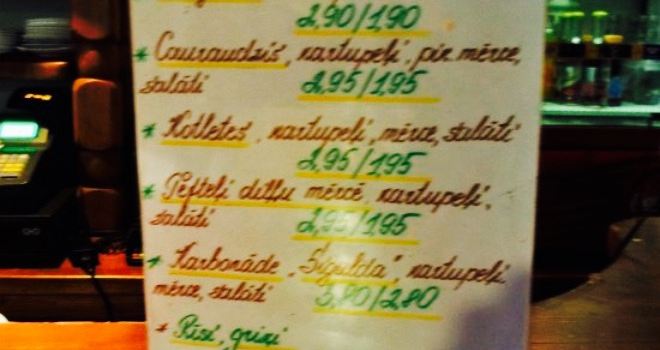 2,90/1,90
* Cauraudzis, kartupeļi, pik. mērce,
salāti 2,95/1,95
* Kotletes, kartupeļi, mērce, salāti
2,95/1,95
* Tefteļi diļļu mērcē, kartupeļi,
salāti 2,95/1,95
* Karbonāde "Sigulda", kartupeļi
mērce, salāti 3,80/2,80
* Rīsi, griķi